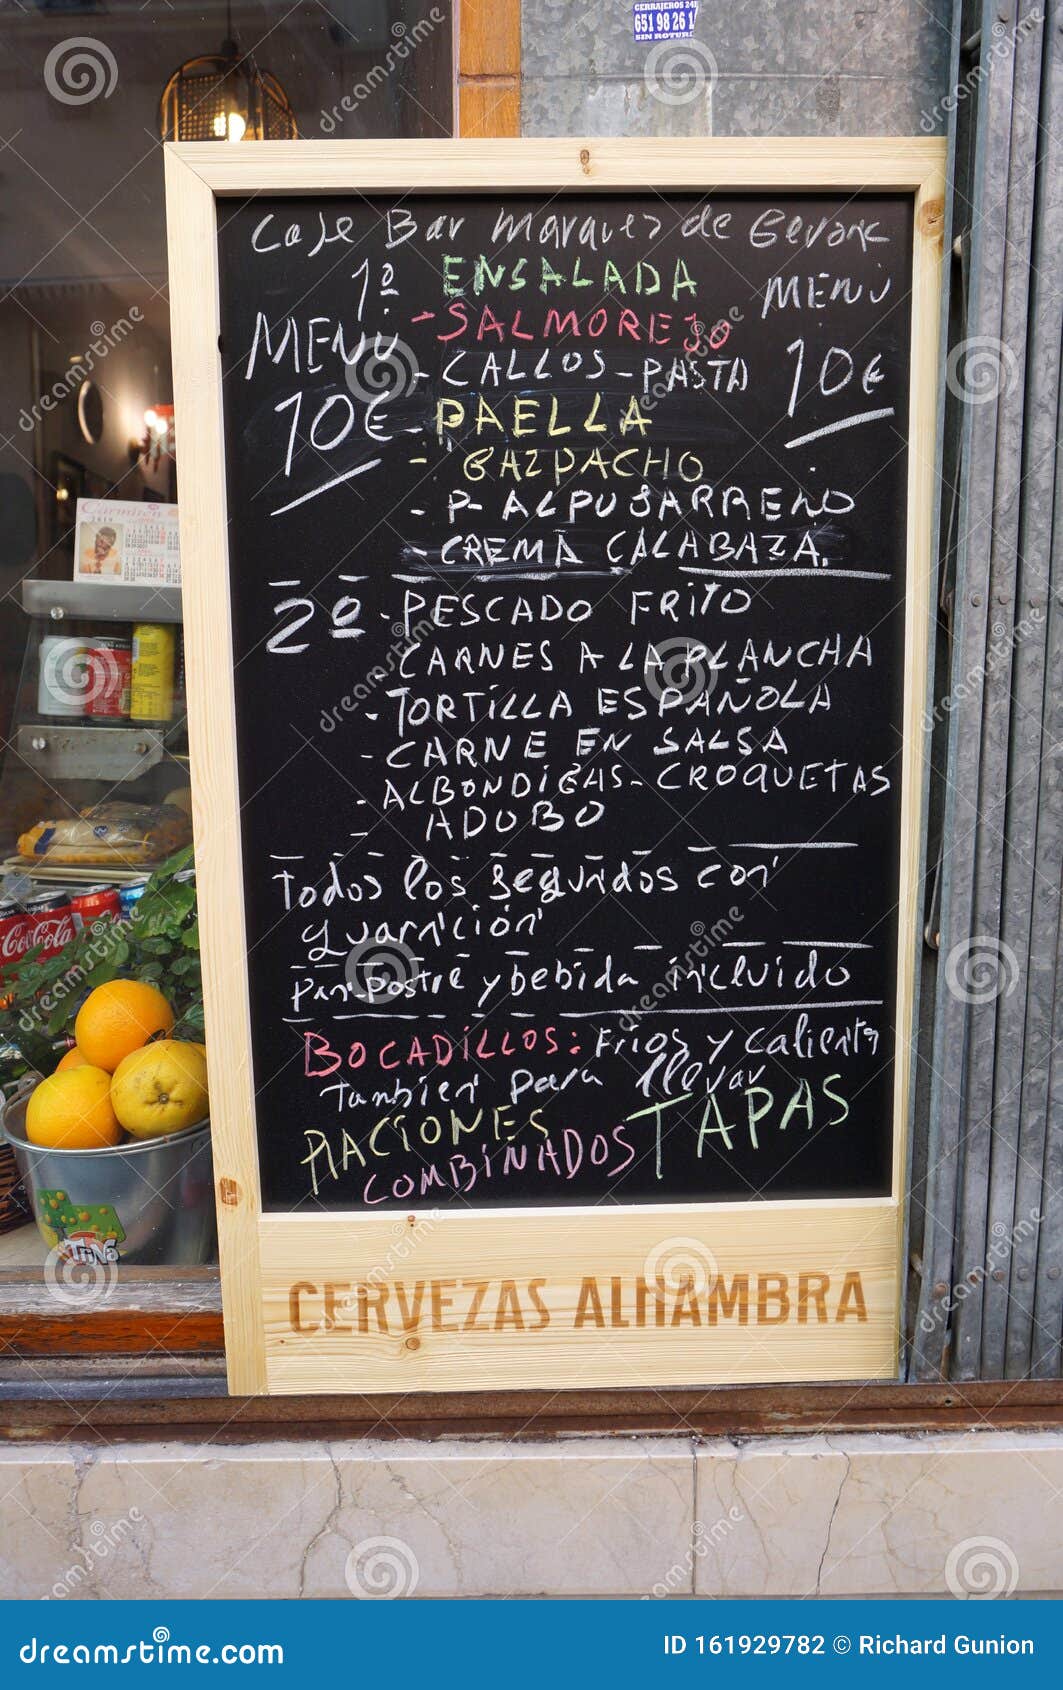 CERRAJEROS 24H
651 98 26 1
SIN ROTURA
Cafe Bar Marques de Gerona
1º ENSALADA
MENU
-SALMOREJO
MENU
-CALLOS-PASTA
10€
10€
-PAELLA
- GAZPACHO
- P-ALPUJARREÑO
-CREMA CALABAZA.
2º-PESCADO FRITO
-CARNES A LA PLANCHA
-TORTILLA ESPAÑOLA
-CARNE EN SALSA
-ALBONDIGAS-CROQUETAS
- ADOBO
Todos los segundos con
guarnición
pan-postre y bebida incluido
BOCADILLOS: Fríos y caliente
Tambien para llevar
RACIONES
TAPAS
COMBINADOS
CERVEZAS ALHAMBRA
Carmiren
2019
Coca-Cola
TriNa
dreamstime.com
ID 161929782 © Richard Gunion